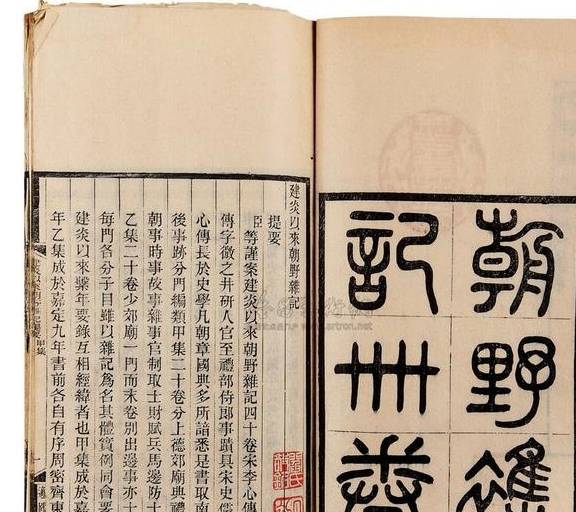 朝野雜
記卌卷
建炎以來朝野雜記
提要
臣等謹案建炎以來朝野雜記四十卷宋李心
傳字微之井研人官至禮部侍郎事蹟具宋史儒
心傳長於史學凡朝章國典多所諳悉是書取南
後事跡分門編類甲集二十卷分上德郊廟典禮
朝事時事故事雜事官制取士財賦兵馬邊防十
乙集二十卷少郊廟一門而末卷別出邊事亦十
每門各分子目雖以雜記爲名其體實例同會要
建炎以來繫年要錄互相經緯者也甲集成於嘉
年乙集成於嘉定九年書前各自有序周密齊東
甲集
artron.net